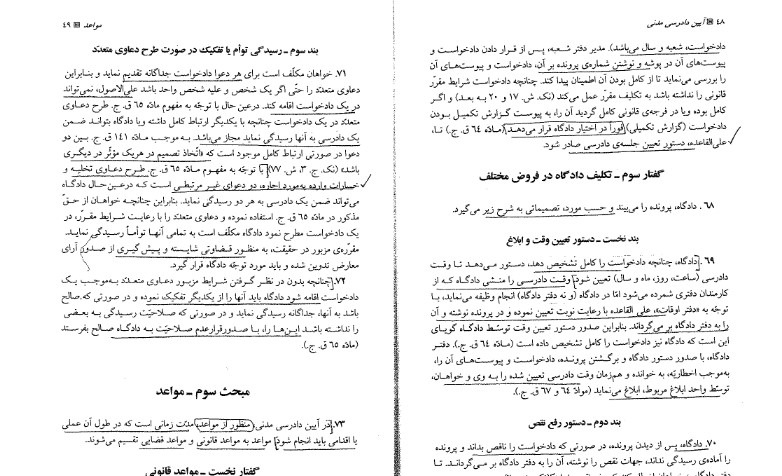 ۴۸ آیین دادرسی مدنی
دادخواست، شعبه و سال می‌باشد). مدیر دفتر شعبه، پس از قرار دادن دادخواست و
پیوست‌های آن در پوشه و نوشتن شماره‌ی پرونده بر آن، دادخواست و پیوست‌های آن
را بررسی می‌نماید تا از کامل بودن آن اطمینان پیدا کند. چنانچه دادخواست شرایط مقرّر
قانونی را نداشته باشد به تکلیف مقرّر عمل می‌کند (نک. ش. ۱۷ و ۲۰ به بعد) و اگر
کامل بوده ویا در فرجه‌ی قانونی کامل گردید آن را، به پیوست گزارش تکمیل بودن
دادخواست (گزارش تکمیلی) فوراً در اختیار دادگاه قرار می‌دهد (مادّه ۶۴ ق.ج.) تا،
علی‌القاعده، دستور تعیین جلسه‌ی دادرسی صادر شود.
گفتار سوم ـ تکلیف دادگاه در فروض مختلف
۶۸. دادگاه، پرونده را می‌بیند و حسب مورد، تصمیماتی به شرح زیر می‌گیرد.
بند نخست ـ دستور تعیین وقت و ابلاغ
۶۹. دادگاه، چنانچه دادخواست را کامل تشخیص دهد، دستور می‌دهد تا وقت
دادرسی (ساعت، روز، ماه و سال) تعیین شود (وقت دادرسی را منشی دادگاه که از
کارمندان دفتری شمرده می‌شود امّا در دادگاه (و نه دفتر دادگاه) انجام وظیفه می‌نماید، با
توجّه به «دفتر اوقات»، علی القاعده با رعایت نوبت تعیین نموده و در پرونده نوشته و آن
را به دفتر دادگاه بر می‌گرداند. بنابراین صدور دستور تعیین وقت توسّط دادگاه گویای
این است که دادگاه نیز دادخواست را کامل تشخیص داده است (مادّه ۶۴ ق.ج.). دفتر
دادگاه، با صدور دستور دادگاه و برگشتن پرونده، دادخواست و پیوست‌های آن را،
به‌موجب اخطاریّه، به خوانده و هم‌زمان وقت دادرسی تعیین شده را به وی و خواهان،
توسّط واحد ابلاغ مربوط، ابلاغ می‌نماید (موادّ ۶۴ و ۶۷ ق.ج.).
بند دوم ـ دستور رفع نقص
۷۰. دادگاه، پس از دیدن پرونده، در صورتی که دادخواست را ناقص بداند و پرونده
را آماده‌ی رسیدگی نداند، جهات نقص را نوشته، آن را به دفتر دادگاه بر می‌گرداند. تا
مواعد ۴۹
بند سوم ـ رسیدگی توأم یا تفکیک در صورت طرح دعاوی متعدّد
۷۱. خواهان مکلّف است برای هر دعوا دادخواست جداگانه تقدیم نماید و بنابراین
دعاوی متعدّد را حتّی اگر یک شخص و علیه شخص واحد باشد علی‌الاصول، نمی‌تواند
در یک دادخواست اقامه کند. درعین حال با توجّه به مفهوم مادّه ۶۵ ق.ج. طرح دعاوی
متعدّد در یک دادخواست چنانچه با یکدیگر ارتباط کامل داشته ویا دادگاه بتواند ضمن
یک دادرسی به آنها رسیدگی نماید مجاز می‌باشد. به موجب مادّه ۱۴۱ ق.ج. بین دو
دعوا در صورتی ارتباط کامل موجود است که «اتّخاذ تصمیم در هریک مؤثّر در دیگری
باشد» (نک. ج. ۳، ش. ۷۷). با توجه به مفهوم مادّه ۶۵ ق.ج. طرح دعاوی تخلیه و
خسارات وارده به‌مورد اجاره، دو دعوای غیر مرتبطی است که درعین‌حال دادگاه
می‌تواند ضمن یک دادرسی به هر دو رسیدگی نماید. بنابراین چنانچه خواهان از حقّ
مذکور در مادّه ۶۵ ق.ج. استفاده نموده و دعاوی متعدّد را با رعایت شرایط مقرّر، در
یک دادخواست مطرح نمود دادگاه مکلّف است به تمامی آنها توأماً رسیدگی نماید.
مقرّره‌ی مزبور در حقیقت، به منظور قضاوتی شایسته و پیش‌گیری از صدور آرای
معارض تدوین شده و باید مورد توجّه دادگاه قرار گیرد.
۷۲. چنانچه بدون در نظر گرفتن شرایط مزبور دعاوی متعدّد به‌موجب یک
دادخواست اقامه شود دادگاه باید آنها را از یکدیگر تفکیک نموده و در صورتی که صالح
باشد به آنها، جداگانه رسیدگی نماید و در صورتی که صلاحیّت رسیدگی به بعضی
را نداشته باشد این‌ها را، با صدورقرارعدم صلاحیّت به دادگاه صالح بفرستد
(مادّه ۶۵ ق.ج.).
مبحث سوم ـ مواعد
۷۳. در آیین دادرسی مدنی، منظور از مواعد، مدّت زمانی است که در طول آن عملی
یا اقدامی باید انجام شود. مواعد به مواعد قانونی و مواعد قضایی تقسیم می‌شوند.
گفتار نخست ـ مواعد قانونی